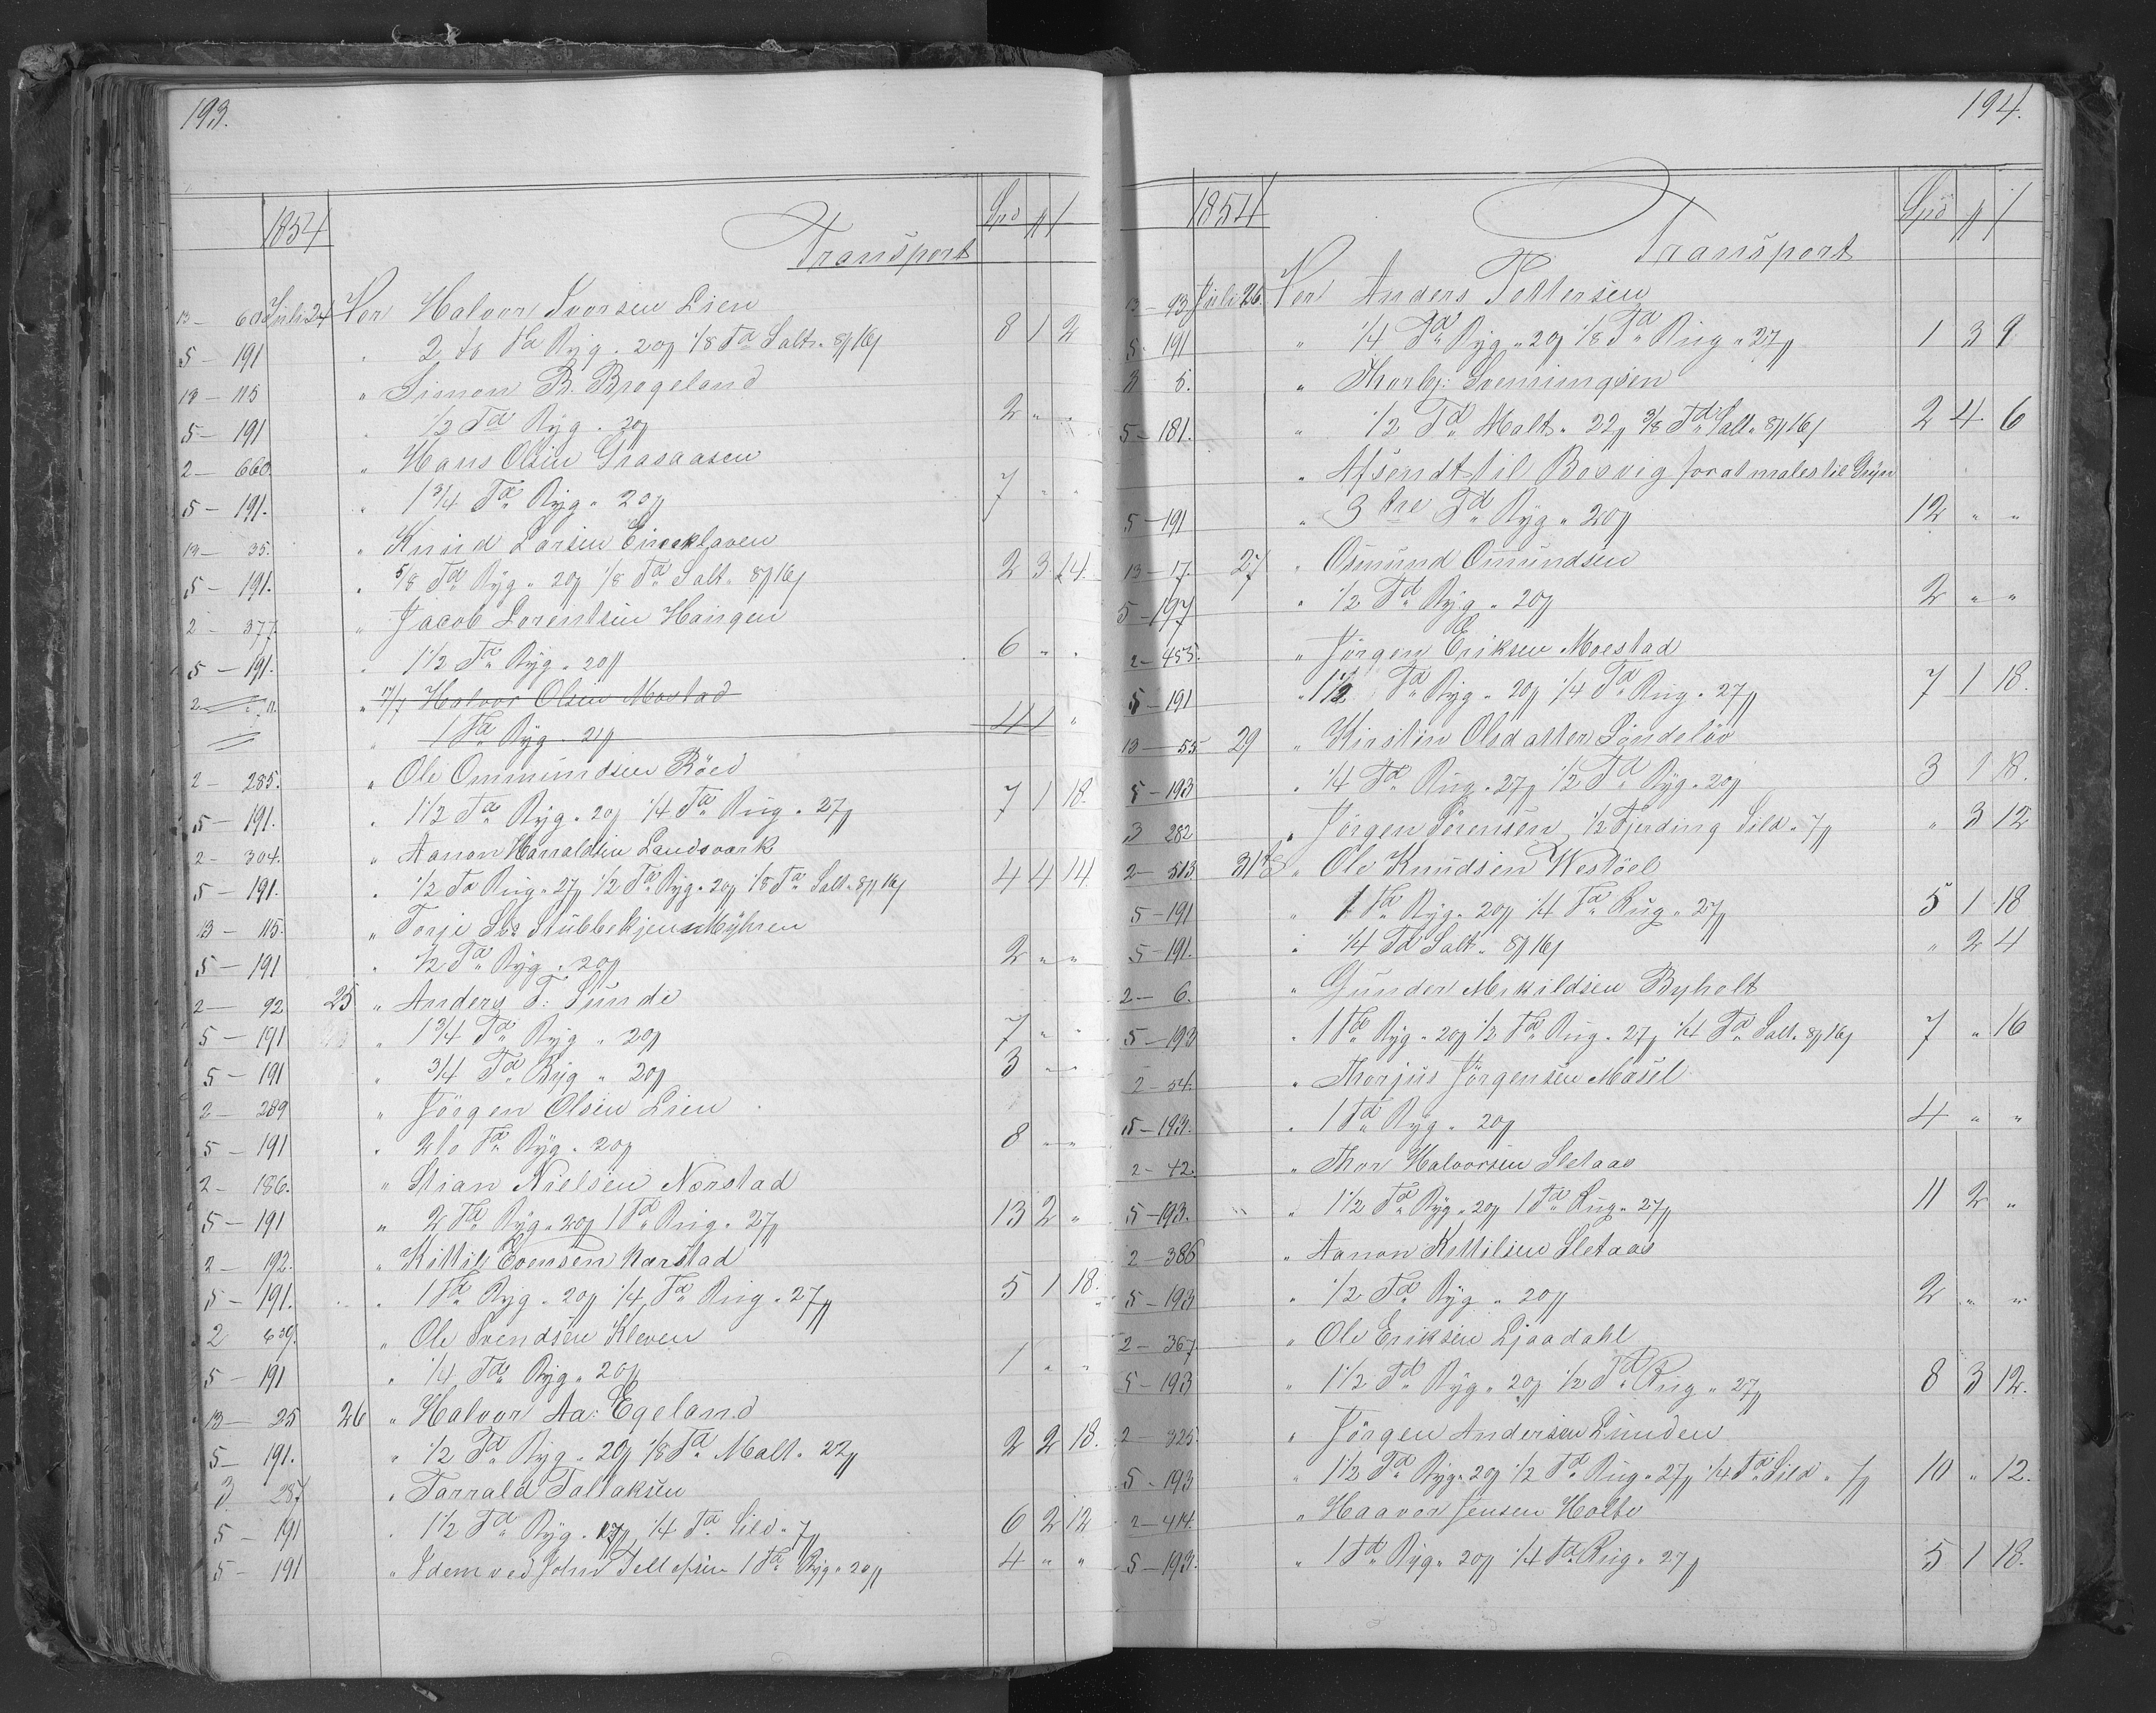 193.
1854
Transport
Spd
13 – 60 Juli 24 Her Halvor Ivorsen Lien
5 – 191 " 2 to Td Byg " 20/ 1/8 Td Salt " 8/16/ 8 1 2
13 – 115 " Simon B. Brogeland
5 – 191 " 1/2 Td Byg " 20/ 2 " "
2 – 660. " Hans Olsen Grasaasen
5 – 191. " 1 3/4 Td Byg " 20/ 7 " "
13 – 35. " Knud Larsen
5 – 191. " 5/8 Td Byg " 20/ 1/8 Td Salt " 8/16/ 2 3 14.
2 – 377. " Jacob Lorentsen Haugen
5 – 191. " 1 1/2 Td Byg " 20/ 6 " "
2 " 17/7 Halvor Olsen Mostad
" 1 Td Byg " 21/ 4 1 "
2 – 285. " Ole Ommundsen Röed
5 – 191. " 1 1/2 Td Byg " 20/ 1/4 Td Rug " 27/ 7 1 18.
2 – 304. " Aanon Harraldsen Landsvark
5 – 191. " 1/2 Td Rug " 27/ 1/2 Td Byg " 20/ 1/8 Td Salt " 8/16/ 4 4 14
13 – 115. " Torje Stubbekjen Myhren
5 – 191 " 1/2 Td Byg " 20/ 2 " "
2 – 92 25 " Anders T: Sunde
5 – 191 " 1 3/4 Td Byg " 20/ 7 " "
5 – 191 " 3/4 Td Byg " 20/ 3 " "
2 – 289 " Jörgen Olsen Lien
5 – 191 " 2 to Td Byg " 20/ 8 " "
2 – 186. " Stian Nielsen Norstad
5 – 191 " 2 Td Byg " 20/ 1 Td Rug " 27/ 13 2 "
2 – 192. " Kittil Evensen Narstad
5 – 191. " 1 Td Byg " 20/ 1/4 Td Rug " 27/ 5 1 18.
2 639. " Ole Svendsen Kleven
5 – 191 " 1/4 Td Byg " 20/ 1 " "
13 – 25 26 " Halvor Aa: Egeland
5 – 191. " 1/2 Td Byg " 20/ 1/8 Td Malt " 22/ 2 2 18.
3 287 " Tarrald Tallaksen
5 – 191 " 1 1/2 Td Byg " 17/ 1/4 Td Sild " 7/ 6 2 12
5 – 191 " Idem ved John Tellefsen 1 Td Byg " 20/ 4 " "
194.
1854
Transport
Spd
13 – 93 Juli 26. Her Anders Pettersen
5 – 191 " 1/4 Td Byg " 20/ 1/8 Td Rug " 27/ 1 3 9
3 5. " Thorbj: Svenningsen
5 – 181. " 1/2 Td Malt " 22/ 3/8 Td Salt " 8/16/ 2 4 6
" Afsendt til Bosvig for at males til Gryn
5 – 191 " 3 tre Td Byg " 20/ 12 " "
13 – 17. 27 " Osmund Omundsen
5 – 197 " 1/2 Td Byg " 20/ 2 " "
2 – 455. " Jörgen Eriksen Moestad
5 – 191 " 1 1/2 Td Byg " 20/ 1/4 Td Rug " 27/ 7 1 18.
13 – 55 29 " Kirstin Olsdatter Söndelöv
5 – 193 " 1/4 Td Rug " 27/ 1/2 Td Byg " 20/ 3 1 18.
3 282 " Jörgen Sörensen 1/2 Fjerding Sild " 7/ " 3 12
2 – 513 31 " Ole Knudsen Westöel
5 – 191 " 1 Td Byg " 20/ 1/4 Td Rug " 27/ 5 1 18
5 – 191. " 1/4 Td Salt " 8/16/ " 2 4
2 – 6. " Gunder Merkildsen Byholt
5 – 193 " 1 Td Byg " 20/ 1/2 Td Rug " 27/ 1/4 Td Salt " 8/16/ 7 " 16
2 – 54. " Thorjus Jörgensen Masel
5 – 193. " 1 Td Byg " 20/ 4 " "
2 – 42. " Thor Halvorsen Sletaas
5 – 193. " 1 1/2 Td Byg " 20/ 1 Td Rug " 27/ 11 2 "
2 – 386 " Aanon Kittilsen Sletaas
5 – 193 " 1/2 Td Byg " 20/ 2 " "
2 – 367. " Ole Eriksen Ljaadahl
5 – 193 " 1 1/2 Td Byg " 20/ 1/2 Td Rug " 27/ 8 3 12.
2 – 325. " Jörgen Andersen Lunden
5 – 193 " 1 1/2 Td Byg " 20/ 1/2 Td Rug " 27/ 1/4 Td Sild " 7/ 10 " 12.
2 – 414. " Haavor Jensen Holte
5 – 193. " 1 Td Byg " 20/ 1/4 Td Rug " 27/ 5 1 18.